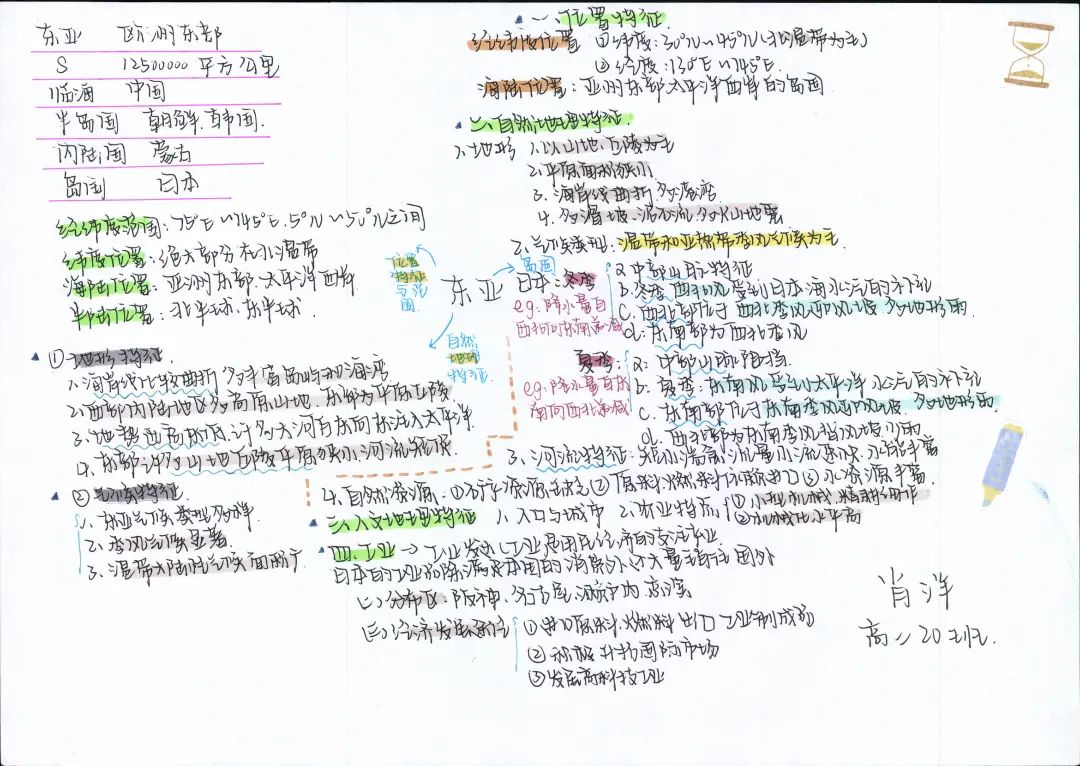 东亚 欧洲东部
S 12500000 平方公里
临海 中国
半岛国 朝鲜.韩国.
内陆国 蒙古
岛国 日本
经纬度范围:75°E~145°E.5°N~50°N之间
纬度位置:绝大部分在北温带
海陆位置:亚洲东部.太平洋西岸
半球位置:北半球.东半球.
①地形特征.
1.海岸线比较曲折.多丰富岛屿和海湾
2.西部内陆地区多高原山地 东部为平原丘陵
3.地势西高东低.许多大河自东向东注入太平洋
4.东部沿多山地丘陵平原狭小.河流短促
②气候特征.
1.东亚气候类型多样.
2.季风气候显著.
3.温带大陆性气候面积广
位置特征与范围.
东亚
自然地理特征.
岛国
一、位置特征.
经纬度位置 ①纬度:30°N~45°N(北温带为主)
②经度:130°E~145°E.
海陆位置:亚洲东部.太平洋西岸的岛国
二、自然地理特征.
1.地形 1.以山地.丘陵为主
2.平原面积狭小
3.海岸线曲折.多海湾
4.多滑坡.泥石流.多火山地震
2.气候类型:温带和亚热带季风气候为主.
日本:冬季
eg:降水量自西北向东南递减
a.中部山脉特征
b.冬季西北风受到日本海水汽的补充
c.西北部位于西北季风迎风坡 多地形雨.
d.东南部为西北季风
夏季:
eg:降水量自东南向西北递减
a.中部山脉阻挡.
b.夏季:东南风受到太平洋 水汽的补充
c.东南部位于东南季风迎风坡.多地形雨
d.西北部为东南季风背风坡.少雨.
3.河流特征:短小湍急.流量小.流速快.水能丰富
4.自然资源:①矿产资源缺乏②原料燃料依赖进口③水资源丰富.
三、人文地理特征 1.人口与城市 2.农业特点 ①小型机械 精耕细作
②机械化水平高
四、工业→工业发达(工业是国民经济的支柱产业.
日本的工业品除满足本国的消费外.还大量销往国外
(二)分布区:阪神.名古屋.濑户内.京滨
(三)经济发展 ①进口原料.燃料出口工业制成品
②积极开拓国际市场
③发展高科技工业
肖洋
高二20班.